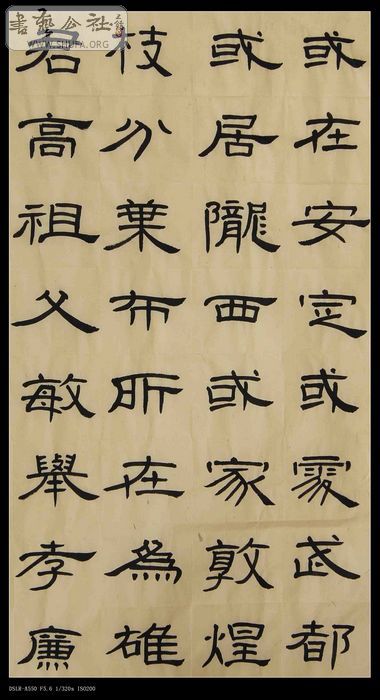 書藝公社
WWW.SHUFA.ORG
或在安定或處武都
或居隴西或家敦煌
枝分葉布所在為雄
君高祖父敏舉孝廉
DSLR-A550 F5.6 1/320s ISO200